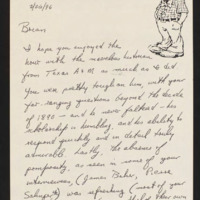 2/26/96
Brian,
I hope you enjoyed the
hour with the novelist historian
from Texas A+M as much as I did.
You were pretty tough on him, with your
far-ranging questions beyond the decade
of 1890 - and he never faltered - his
scholarship is humbling and his ability to
respond quickly and in detail truly
admirable. Lastly, the absence of
pomposity, as seen in some of your
interviewees, (James Baker, Pierre
was refreshing (most of your